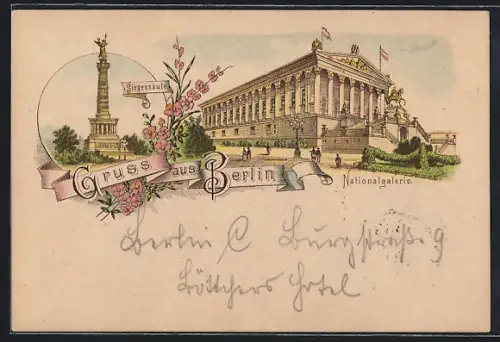 Siegessäule
Gruss aus Berlin
Nationalgalerie.
Berlin C Burgstraße 9
Böttchers Hotel